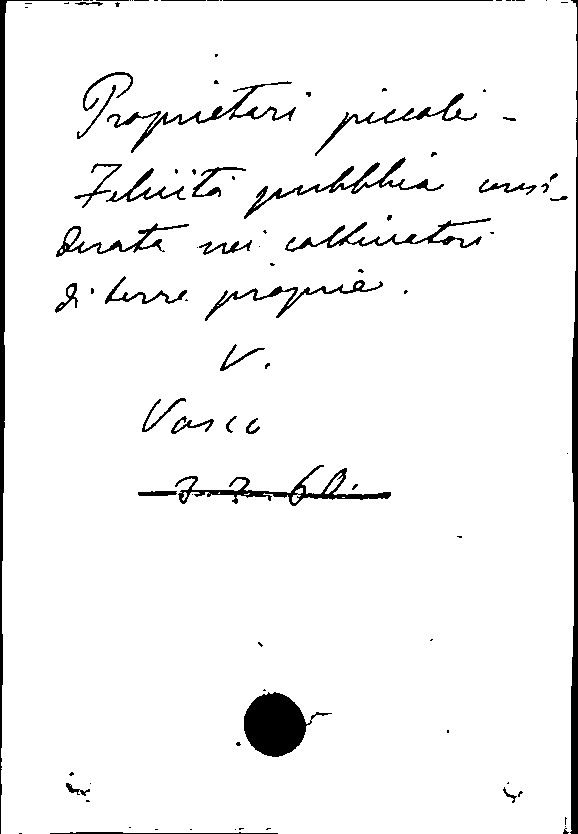 Proprietari piccoli -
Felicità pubblica consi-
derata nei coltivatori
di terre proprie.
V.
Vasco